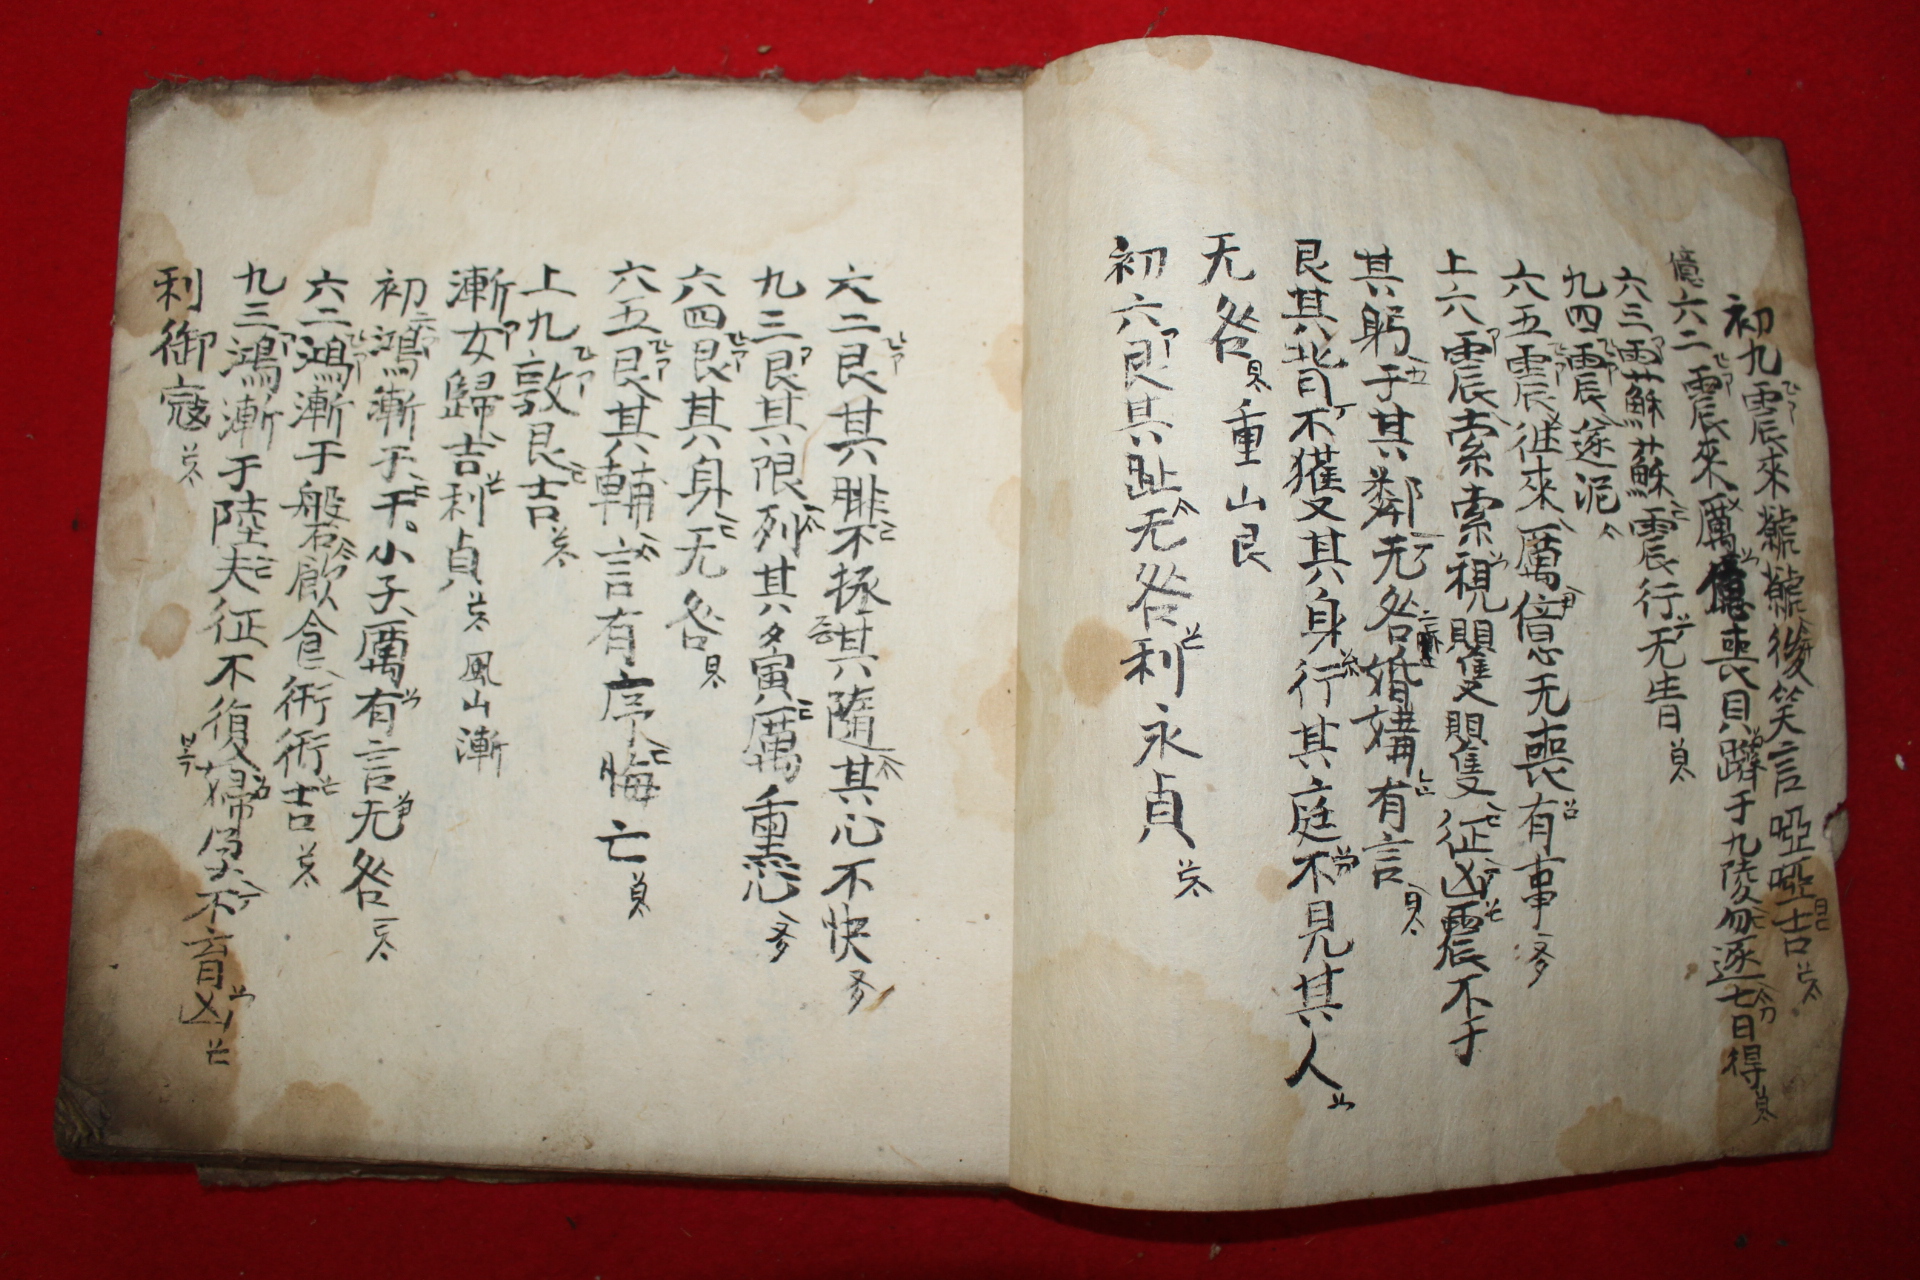 初九震來虩虩後笑言啞啞吉
億六二震來厲億喪貝躋于九陵勿逐七日得
六三震蘇蘇震行无眚
九四震遂泥
六五震往來厲億无喪有事
上六震索索視矍矍征凶震不于
其躬于其鄰无咎婚媾有言
艮其背不獲其身行其庭不見其人
无咎 重山艮
初六艮其趾无咎利永貞
六二艮其腓不拯其隨其心不快
九三艮其限列其夤厲熏心
六四艮其身无咎
六五艮其輔言有序悔亡
上九敦艮吉
漸女歸吉利貞 風山漸
初鴻漸于干小子厲有言无咎
六二鴻漸于磐飲食衎衎吉
九三鴻漸于陸夫征不復婦孕不育凶
利御寇